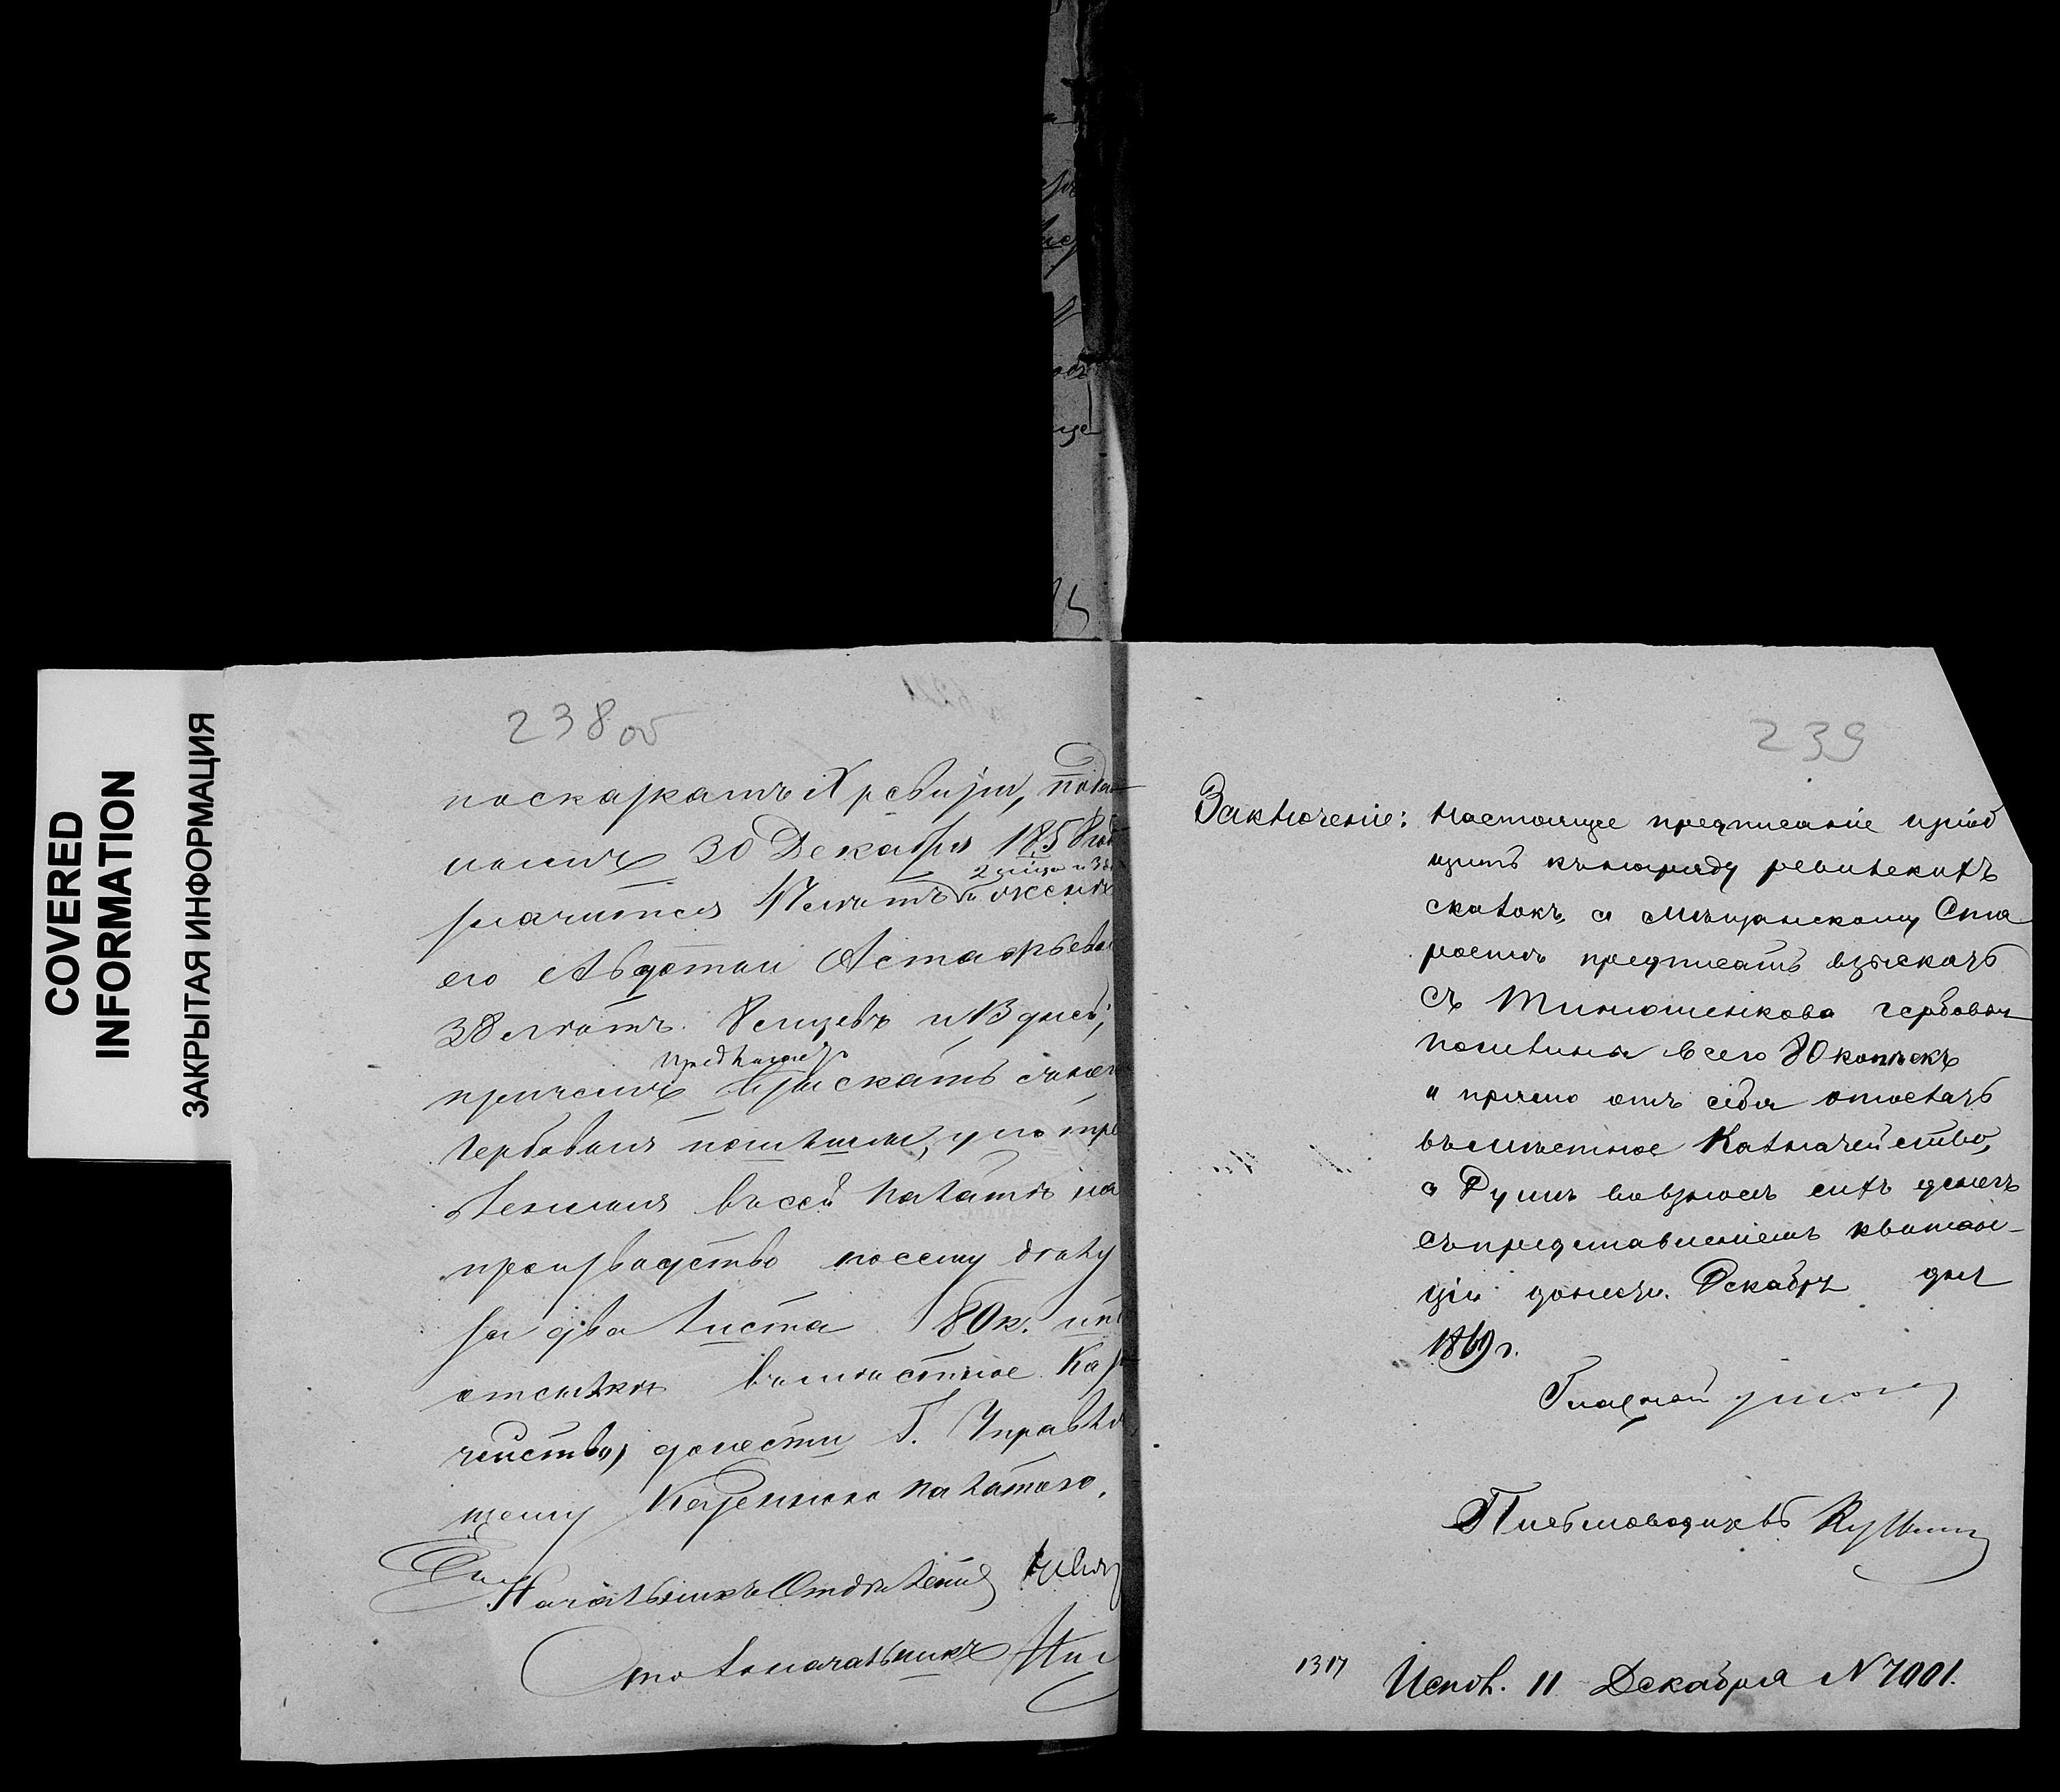 COVERED
INFORMATION
ЗАКРЫТАЯ ИНФОРМАЦИЯ
238 об
посказкамъ X ревизіи, пода
ными 30 Декабря 1858 год
2 мсца и 3
значится лѣтъ и женѣ
его Авдотьи Астафьевой
38 лѣтъ 8 мсцевъ и 13 дней;
предписать
причемъ взыскать
гербовыя пошлины, употре
бленныя въ сей палатѣ на
производство посему дѣлу
за два листа 80 к. и по
отсылкѣ въ мѣстное Каз
чейство, донести Г. Управля
щему Казенною палатою.
Начальникъ Отдѣленія
Столоначальникъ
239
Заключеніе: Настоящее предписаніе пріоб
щить къ наряду ревизскихъ
сказокъ, а Мѣщанскому Ста
ростѣ предписать взыскать
съ Тимошенкова гербовыя
пошлины всего 80 копѣекъ
и прямо отъ себя отослать
въ мѣстное Казначейство,
а Думѣ о взносѣ сихъ денегъ
съ представленіемъ квитан-
ціи донести. Декабря дня
1869 г.
Письмоводитель
1317 Испол. 11 Декабря N 7001.